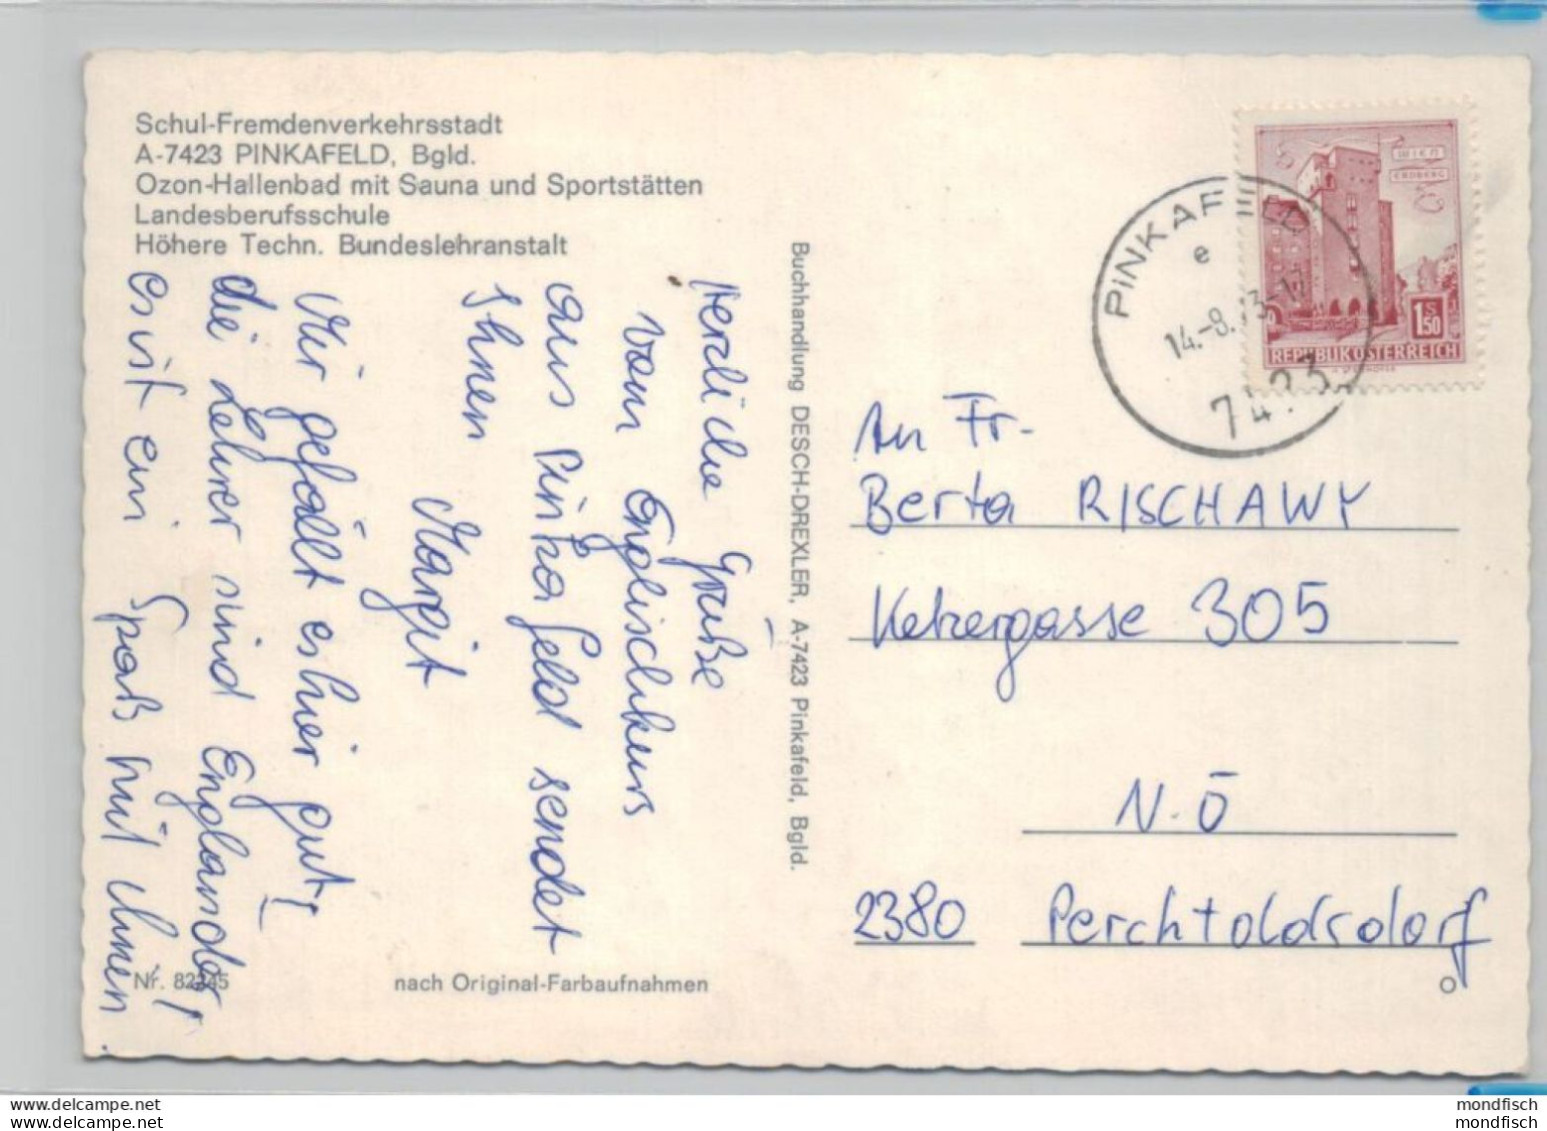 Schul-Fremdenverkehrsstadt
A-7423 PINKAFELD, Bgld.
Ozon-Hallenbad mit Sauna und Sportstätten
Landesberufsschule
Höhere Techn. Bundeslehranstalt
Herzliche Grüße
vom Englischkurs
aus Pinkafeld sendet
Ihnen
Margit
Mir gefällt es hier gut,
die Lehrer sind Engländer,
es ist ein Spaß mit ihnen
Nr. 82245
nach Original-Farbaufnahmen
Buchhandlung DESCH-DREXLER, A-7423 Pinkafeld, Bgld.
PINKAFELD
e
14.-8.73-17
7423
WIEN
ERDBERG
1S50
REPUBLIK ÖSTERREICH
An Fr.
Berta RISCHAWY
Ketzergasse 305
N.Ö
2380 Perchtoldsdorf
mondfisch
mondfisch
delcampe.net
delcampe.net